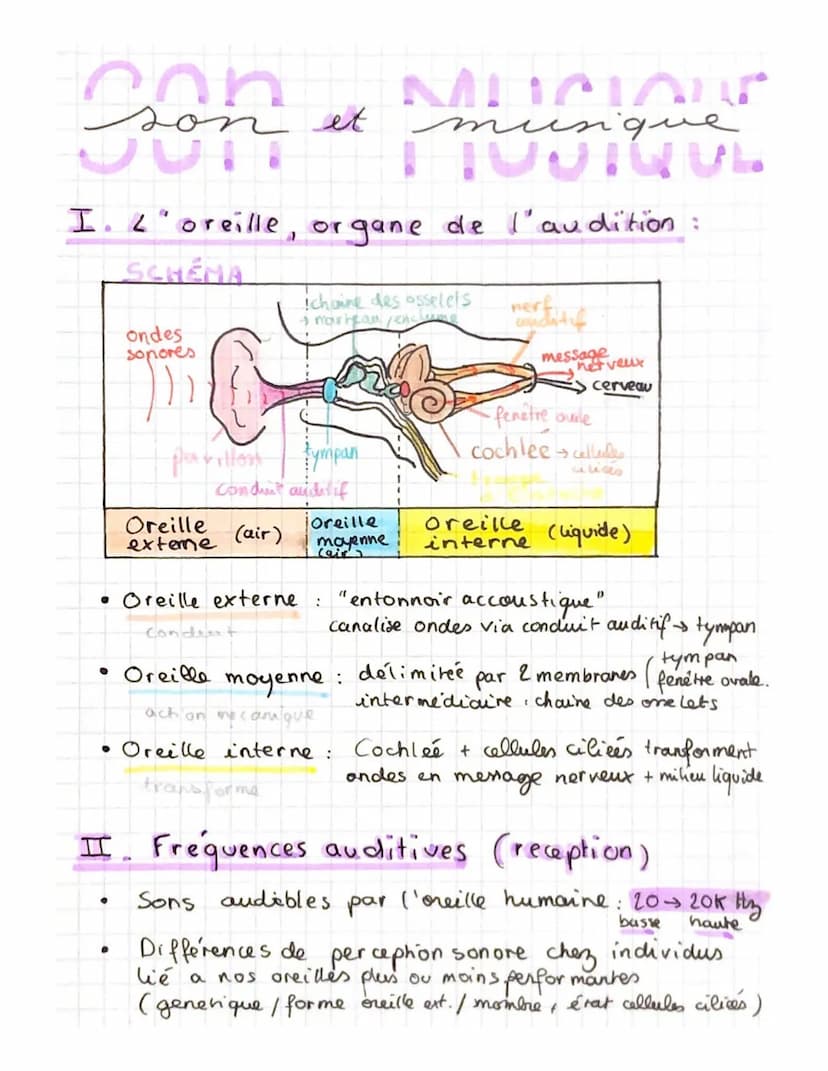 SON MUSIQUE
son et musique
I. L'oreille, organe de l'audition :
SCHÉMA
chaîne des osselets
→ marteau/enclume
nerf
auditif
ondes
sonores
message
nerveux
→ cerveau
fenêtre ovale
pavillon
tympan
cochleé → cellules
ciliées
conduit auditif
Oreille
externe (air)
Oreille
moyenne
(air)
Oreille
interne (liquide)
• Oreille externe : "entonnoir accoustique"
conduit
canalise ondes via conduit auditif → tympan
• Oreille moyenne : délimitée par 2 membranes ( tympan
fenêtre ovale.
action mecanique
intermédiaire : chaine des osselets
• Oreille interne : Cochleé + cellules ciliées transforment
transforme
ondes en message nerveux + milieu liquide
II. Fréquences auditives (reception)
• Sons audibles par l'oreille humaine : 20 → 20K Hz
basse haute
• Différences de perception sonore chez individus
lié a nos oreilles plus ou moins performantes
(genetique / forme oreille ext. / nombre, état cellules ciliées)